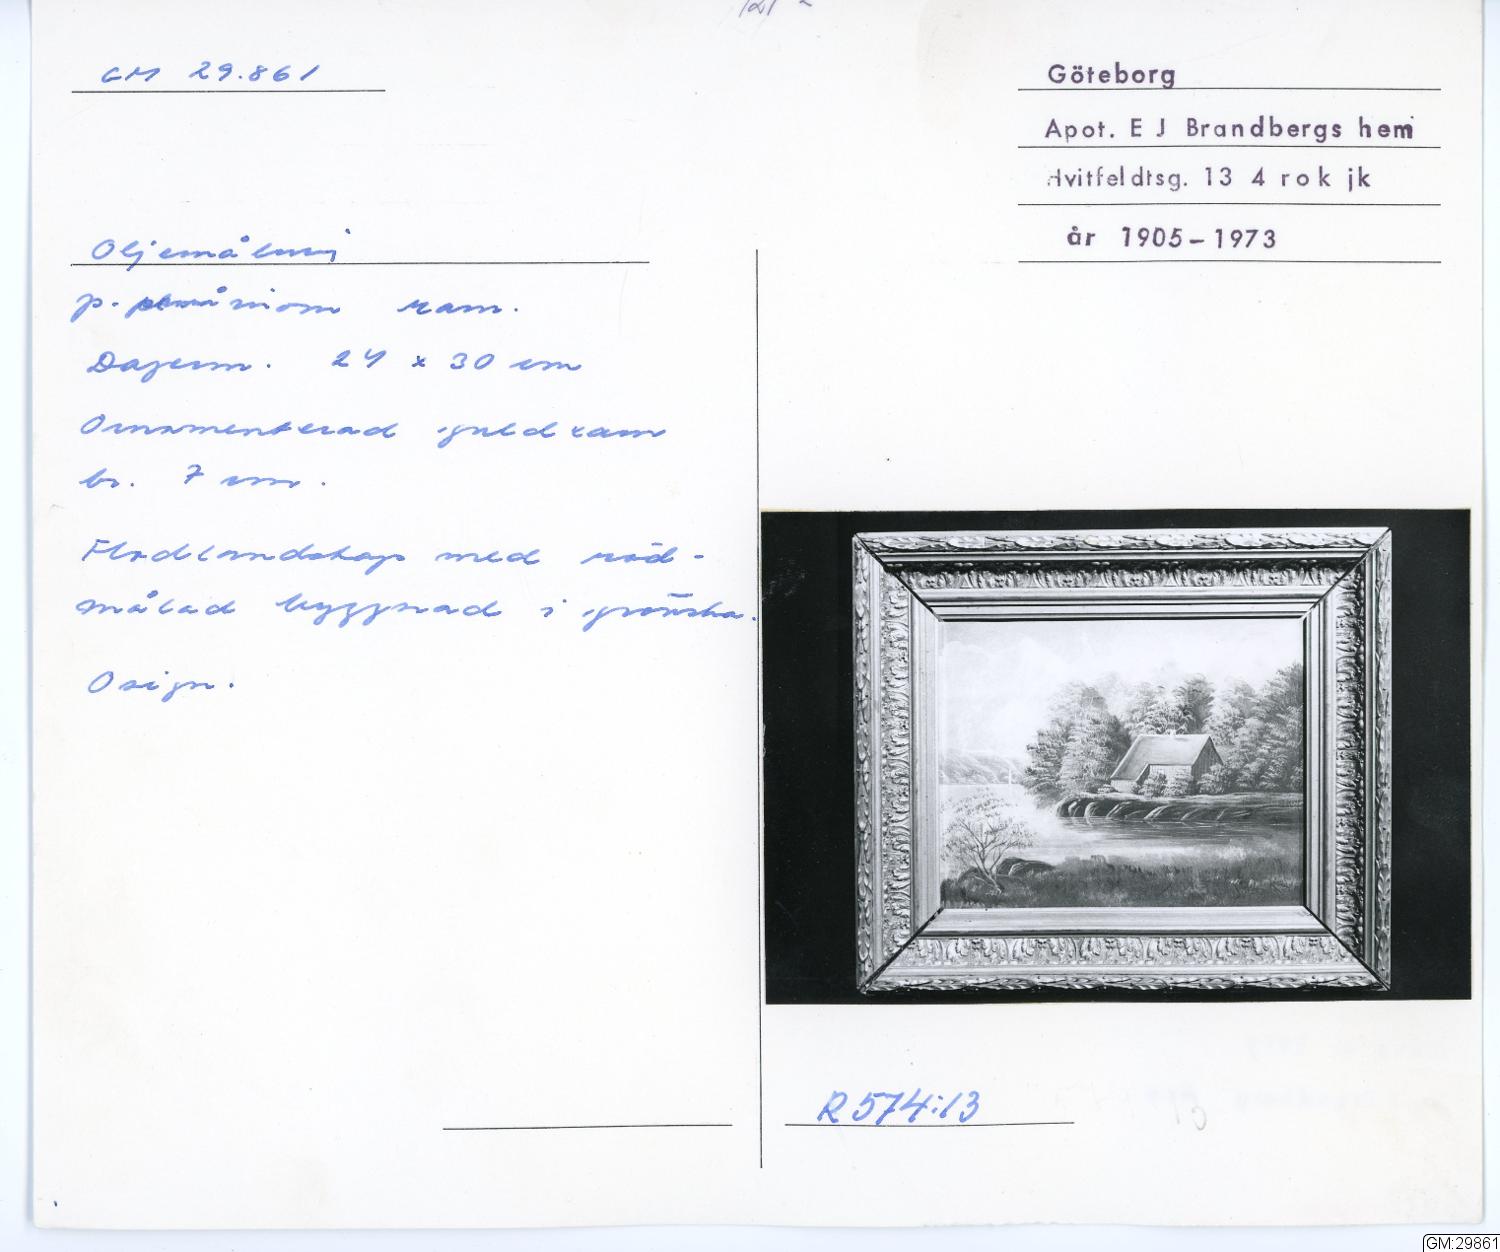 GM 29.861
Göteborg
Apot. E J Brandbergs hem
Hvitfeldtsg. 13 4 rok jk
år 1905-1973
Oljemålning
p. inom ram.
Dagerm. 24 x 30 cm
Ornamenterad guldram
br. 7 cm.
Flodlandskap med röd-
målad byggnad i grönska.
Osign.
R 574:13
GM:29861